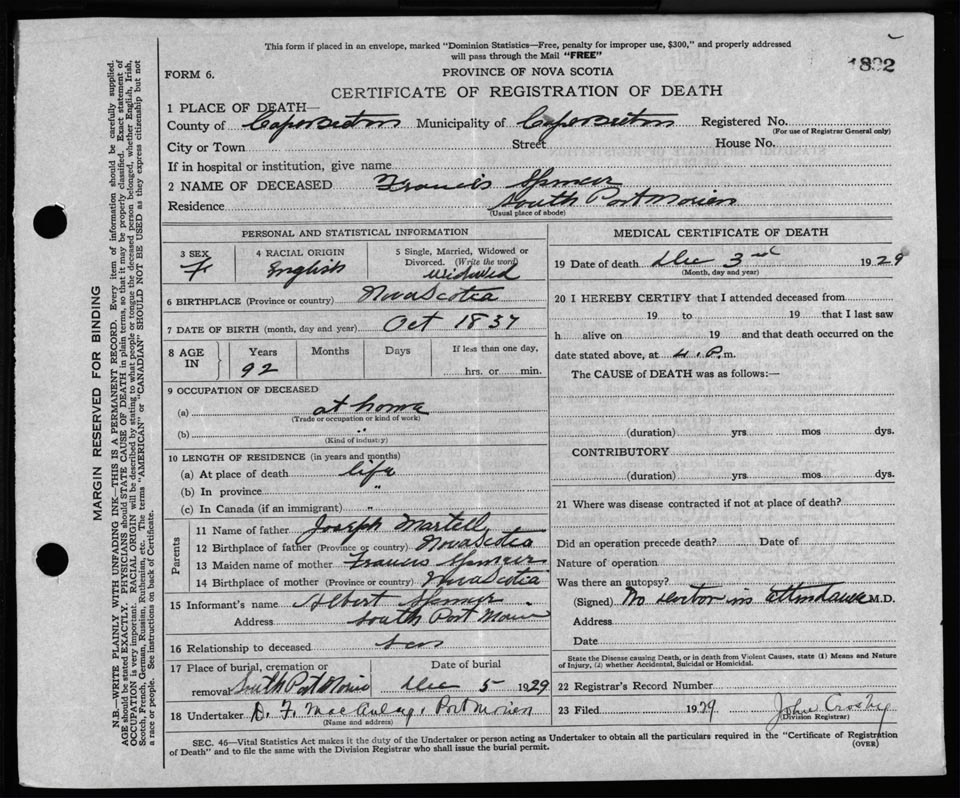 This form if placed in an envelope, marked "Dominion Statistics—Free, penalty for improper use, $300," and properly addressed
will pass through the Mail "FREE"
1892
FORM 6.
PROVINCE OF NOVA SCOTIA
CERTIFICATE OF REGISTRATION OF DEATH
MARGIN RESERVED FOR BINDING
N.B.—WRITE PLAINLY WITH UNFADING INK—THIS IS A PERMANENT RECORD. Every item of information should be carefully supplied.
AGE should be stated EXACTLY. PHYSICIANS should STATE CAUSE OF DEATH in plain terms, so that it may be properly classified. Exact statement of
OCCUPATION is very important. RACIAL ORIGIN will be described by stating to what people or tongue the deceased person belonged, whether English, Irish,
Scotch, French, German, Russian, Ruthenian, etc. The terms "AMERICAN" or "CANADIAN" SHOULD NOT BE USED as they express citizenship but not
a race or people. See instructions on back of Certificate.
1 PLACE OF DEATH—
County of Cape Breton Municipality of Cape Breton Registered No.
(For use of Registrar General only)
City or Town Street House No.
If in hospital or institution, give name
2 NAME OF DECEASED Francis Spencer
Residence South Port Morien
(Usual place of abode)
PERSONAL AND STATISTICAL INFORMATION
3 SEX 4 RACIAL ORIGIN 5 Single, Married, Widowed or
Divorced. (Write the word)
F. English widowed
6 BIRTHPLACE (Province or country) Nova Scotia
7 DATE OF BIRTH (month, day and year) Oct 1837
8 AGE IN Years Months Days If less than one day,
92 hrs. or min.
9 OCCUPATION OF DECEASED
(a) at home
(Trade or occupation or kind of work)
(b) "
(Kind of industry)
10 LENGTH OF RESIDENCE (in years and months)
(a) At place of death life
(b) In province "
(c) In Canada (if an immigrant) "
Parents
11 Name of father Joseph Martell
12 Birthplace of father (Province or country) Nova Scotia
13 Maiden name of mother Francis Spencer
14 Birthplace of mother (Province or country) Nova Scotia
15 Informant's name Albert Spencer
Address South Port Morien
16 Relationship to deceased son
17 Place of burial, cremation or Date of burial
removal South Port Morien Dec 5 1929
18 Undertaker D. F. MacAulay, Port Morien
(Name and address)
MEDICAL CERTIFICATE OF DEATH
19 Date of death Dec 3rd 1929
(Month, day and year)
20 I HEREBY CERTIFY that I attended deceased from
19 to 19 that I last saw
h alive on 19 and that death occurred on the
date stated above, at 4. P. m.
The CAUSE of DEATH was as follows:—
(duration) yrs mos dys.
CONTRIBUTORY
(duration) yrs mos dys.
21 Where was disease contracted if not at place of death?
Did an operation precede death? Date of
Nature of operation
Was there an autopsy?
(Signed) No doctor in attendance M.D.
Address
Date
State the Disease causing Death, or in death from Violent Causes, state (1) Means and Nature
of Injury, (2) whether Accidental, Suicidal or Homicidal.
22 Registrar's Record Number
23 Filed 1929 John Crosby
(Division Registrar)
SEC. 46—Vital Statistics Act makes it the duty of the Undertaker or person acting as Undertaker to obtain all the particulars required in the "Certificate of Registration
of Death" and to file the same with the Division Registrar who shall issue the burial permit.
(OVER)